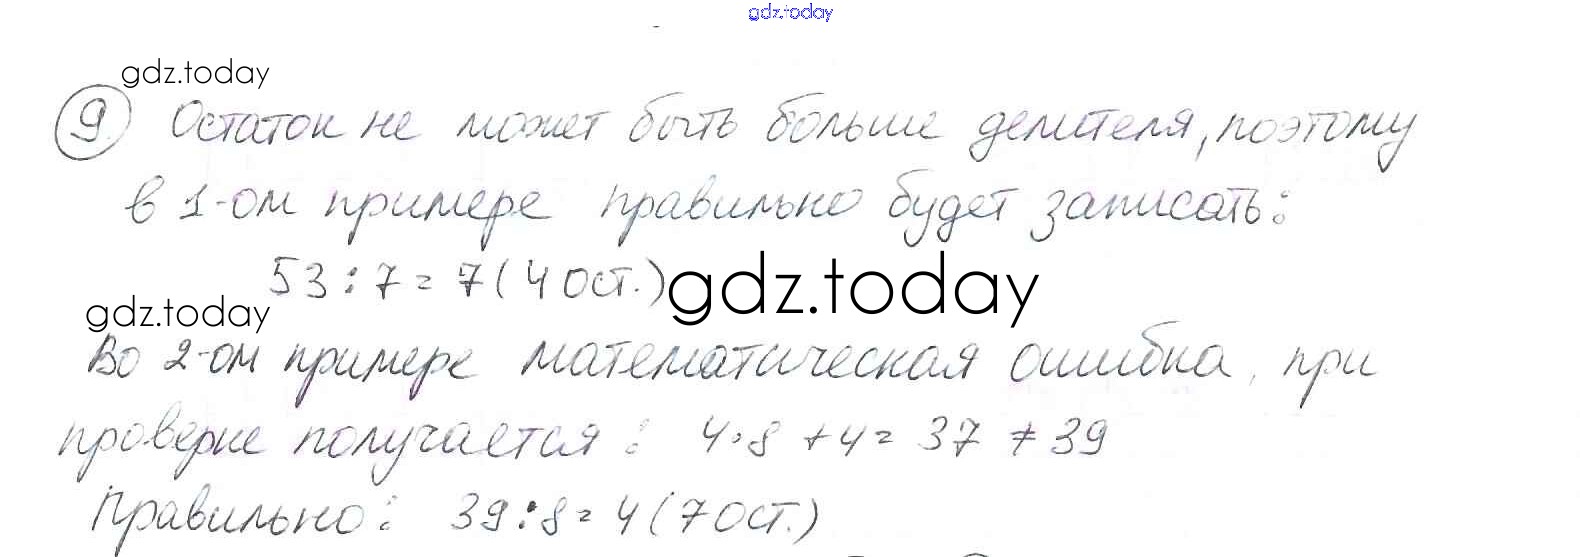 gdz.today
gdz.today
9. Остаток не может быть больше делителя, поэтому
в 1-ом примере правильно будет записать:
53 : 7 = 7 (4 ост.)
gdz.today
gdz.today
Во 2-ом примере математическая ошибка, при
проверке получается : 4 · 8 + 4 = 37 ≠ 39
Правильно: 39 : 8 = 4 (7 ост.)